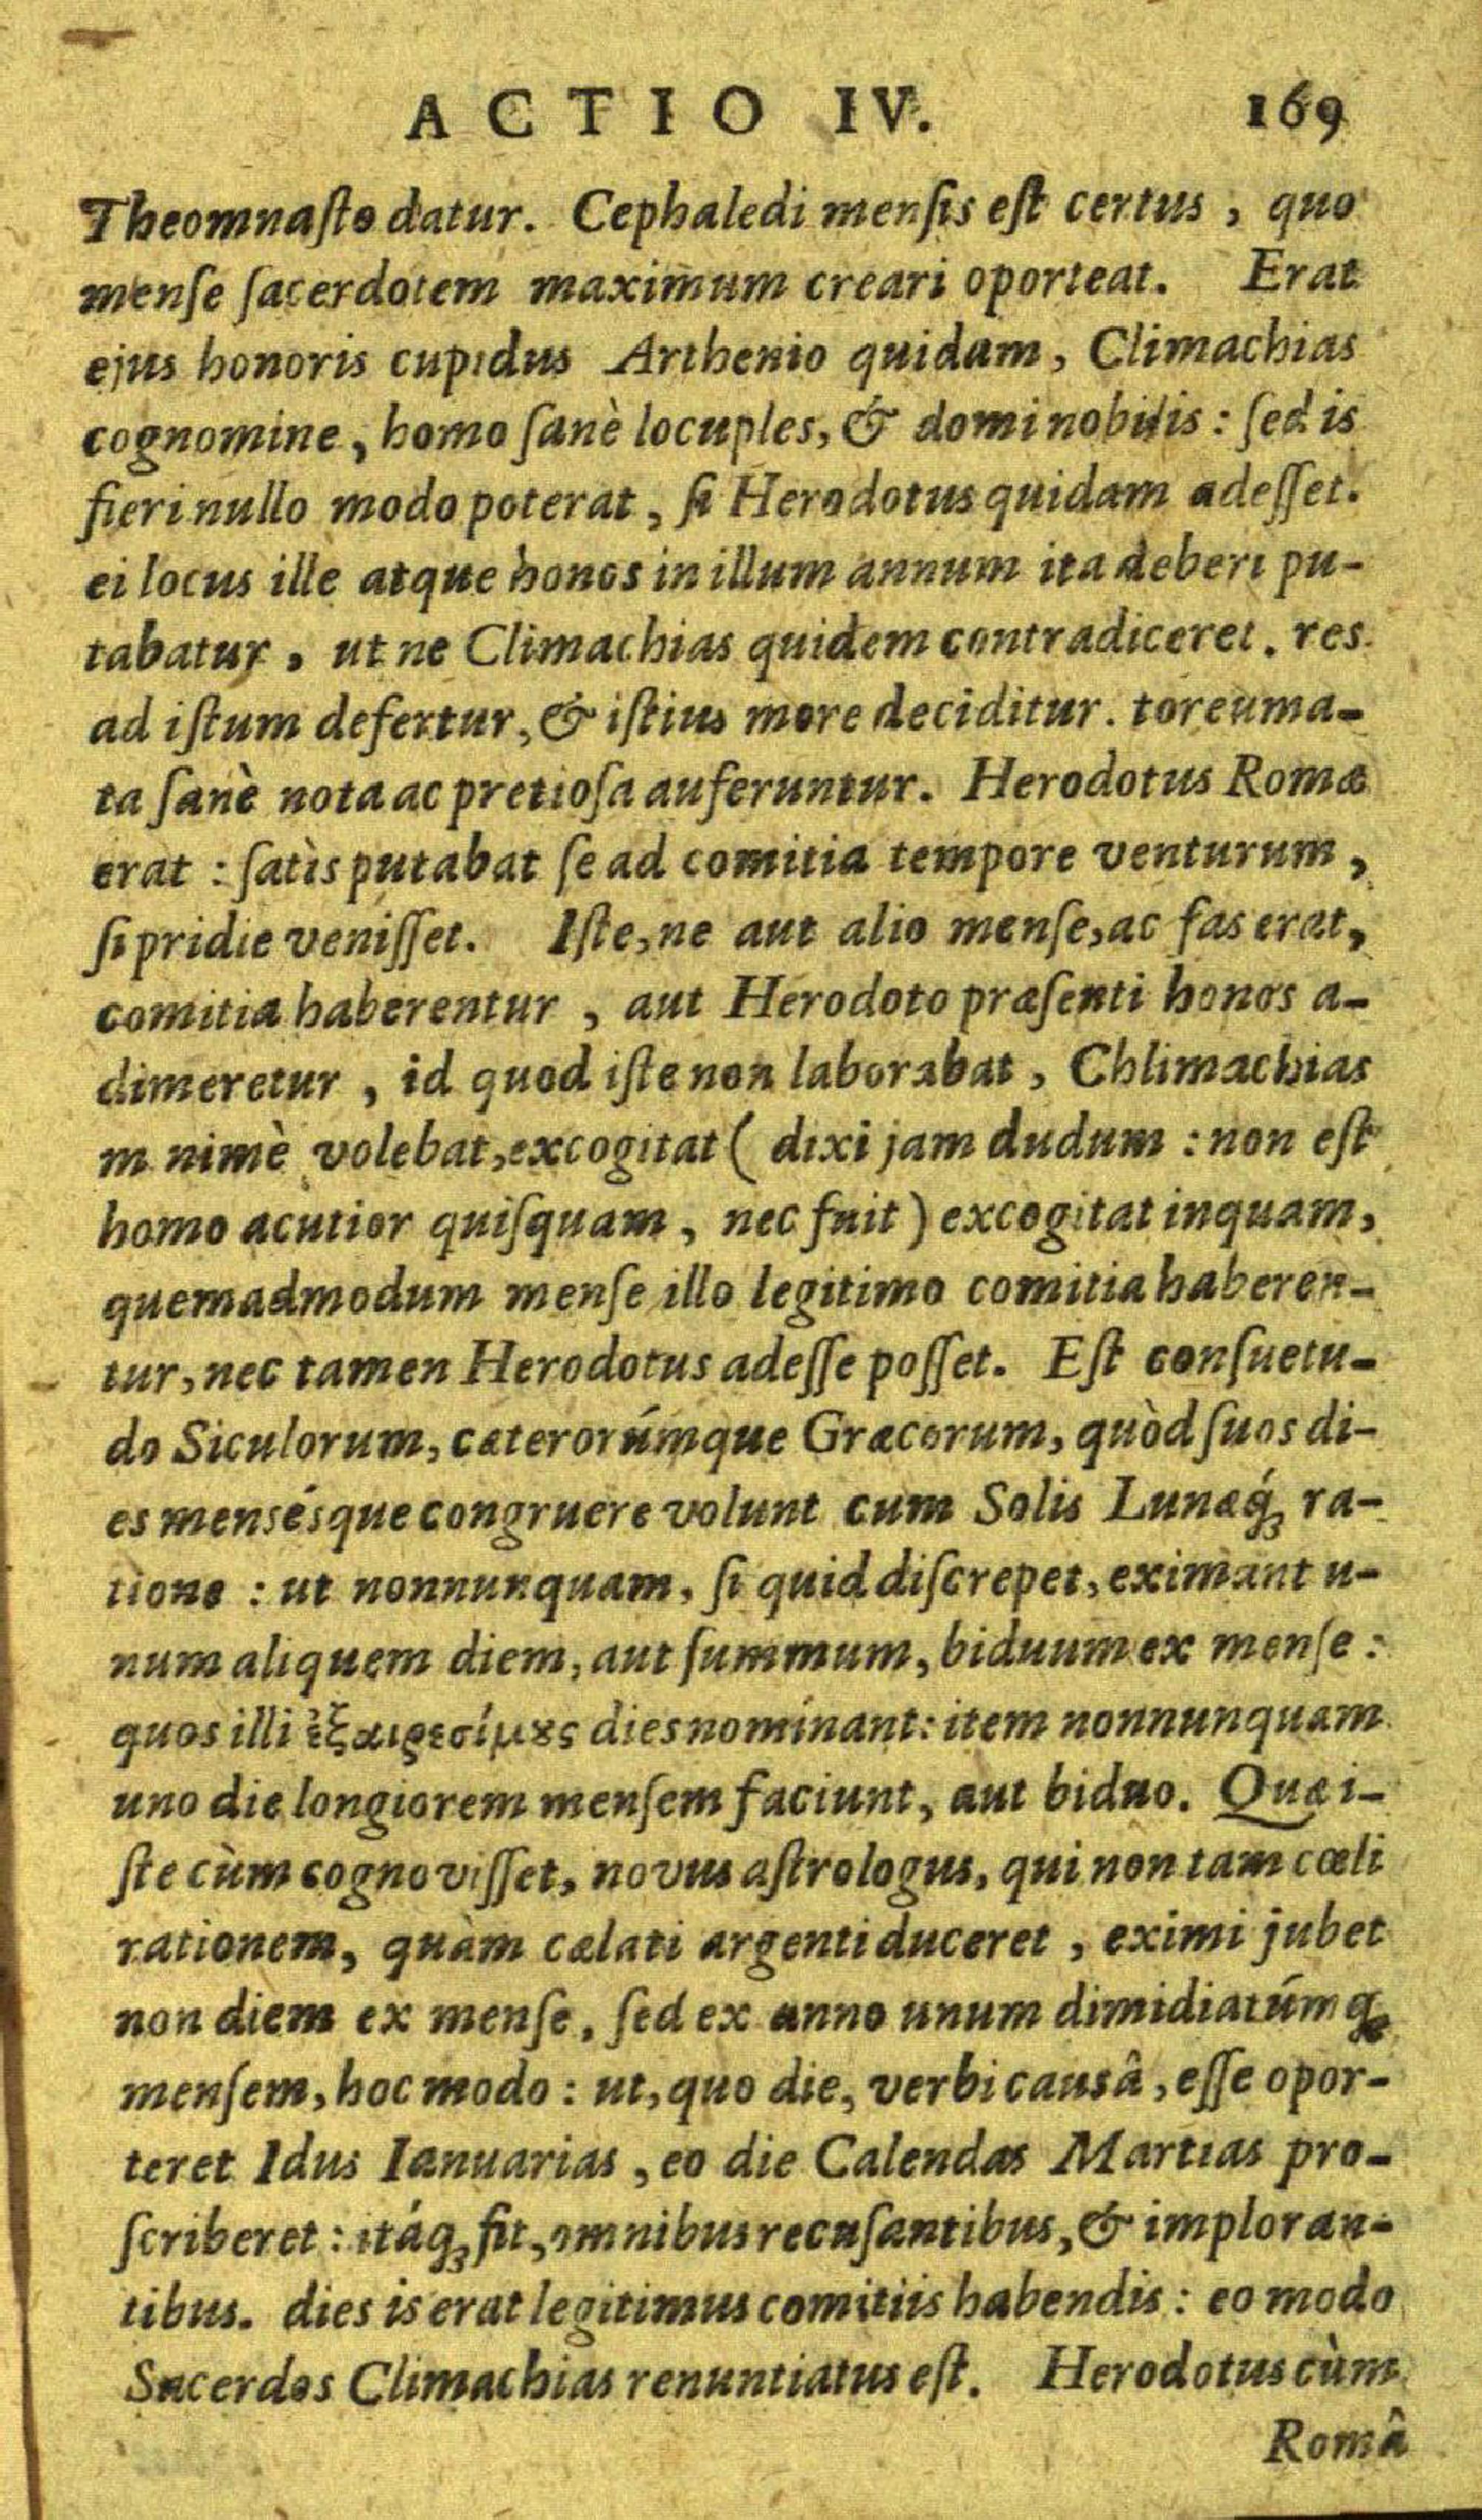 ACTIO IV. 169
Theomnaſto datur. Cephaledi menſis eſt certus, quo
menſe ſacerdotem maximum creari oporteat. Erat
ejus honoris cupidus Arthenio quidam, Climachias
cognomine, homo ſanè locuples, & domi nobilis: ſed is
fieri nullo modo poterat, ſi Herodotus quidam adeſſet.
ei locus ille atque honos in illum annum ita deberi pu-
tabatur, ut ne Climachias quidem contradiceret. res
ad iſtum defertur, & iſtius more deciditur. toreuma-
ta ſanè nota ac pretioſa auferuntur. Herodotus Romæ
erat: ſatis putabat ſe ad comitia tempore venturum,
ſi pridie veniſſet. Iſte, ne aut alio menſe, ac fas erat,
comitia haberentur, aut Herodoto præſenti honos a-
dimeretur, id quod iſte non laborabat, Chlimachias
m nimè volebat, excogitat (dixi jam dudum: non eſt
homo acutior quiſquam, nec fuit) excogitat inquam,
quemadmodum menſe illo legitimo comitia haberen-
tur, nec tamen Herodotus adeſſe poſſet. Eſt conſuetu-
do Siculorum, cæterorúmque Græcorum, quòd ſuos di-
es mensésque congruere volunt cum Solis Lunæq́; ra-
tione: ut nonnunquam, ſi quid diſcrepet, eximant u-
num aliquem diem, aut ſummum, biduum ex menſe:
quos illi ἐξαιρεσίμȣς dies nominant: item nonnunquam
uno die longiorem menſem faciunt, aut biduo. Quæ i-
ſte cùm cognoviſſet, novus aſtrologus, qui non tam cœli
rationem, quàm cælati argenti duceret, eximi jubet
non diem ex menſe, ſed ex anno unum dimidiatúmq;
menſem, hoc modo: ut, quo die, verbi causâ, eſſe opor-
teret Idus Ianuarias, eo die Calendas Martias pro-
ſcriberet: itáq; fit, omnibus recuſantibus, & imploran-
tibus. dies is erat legitimus comitiis habendis: eo modo
Sacerdos Climachias renuntiatus eſt. Herodotus cùm
Româ